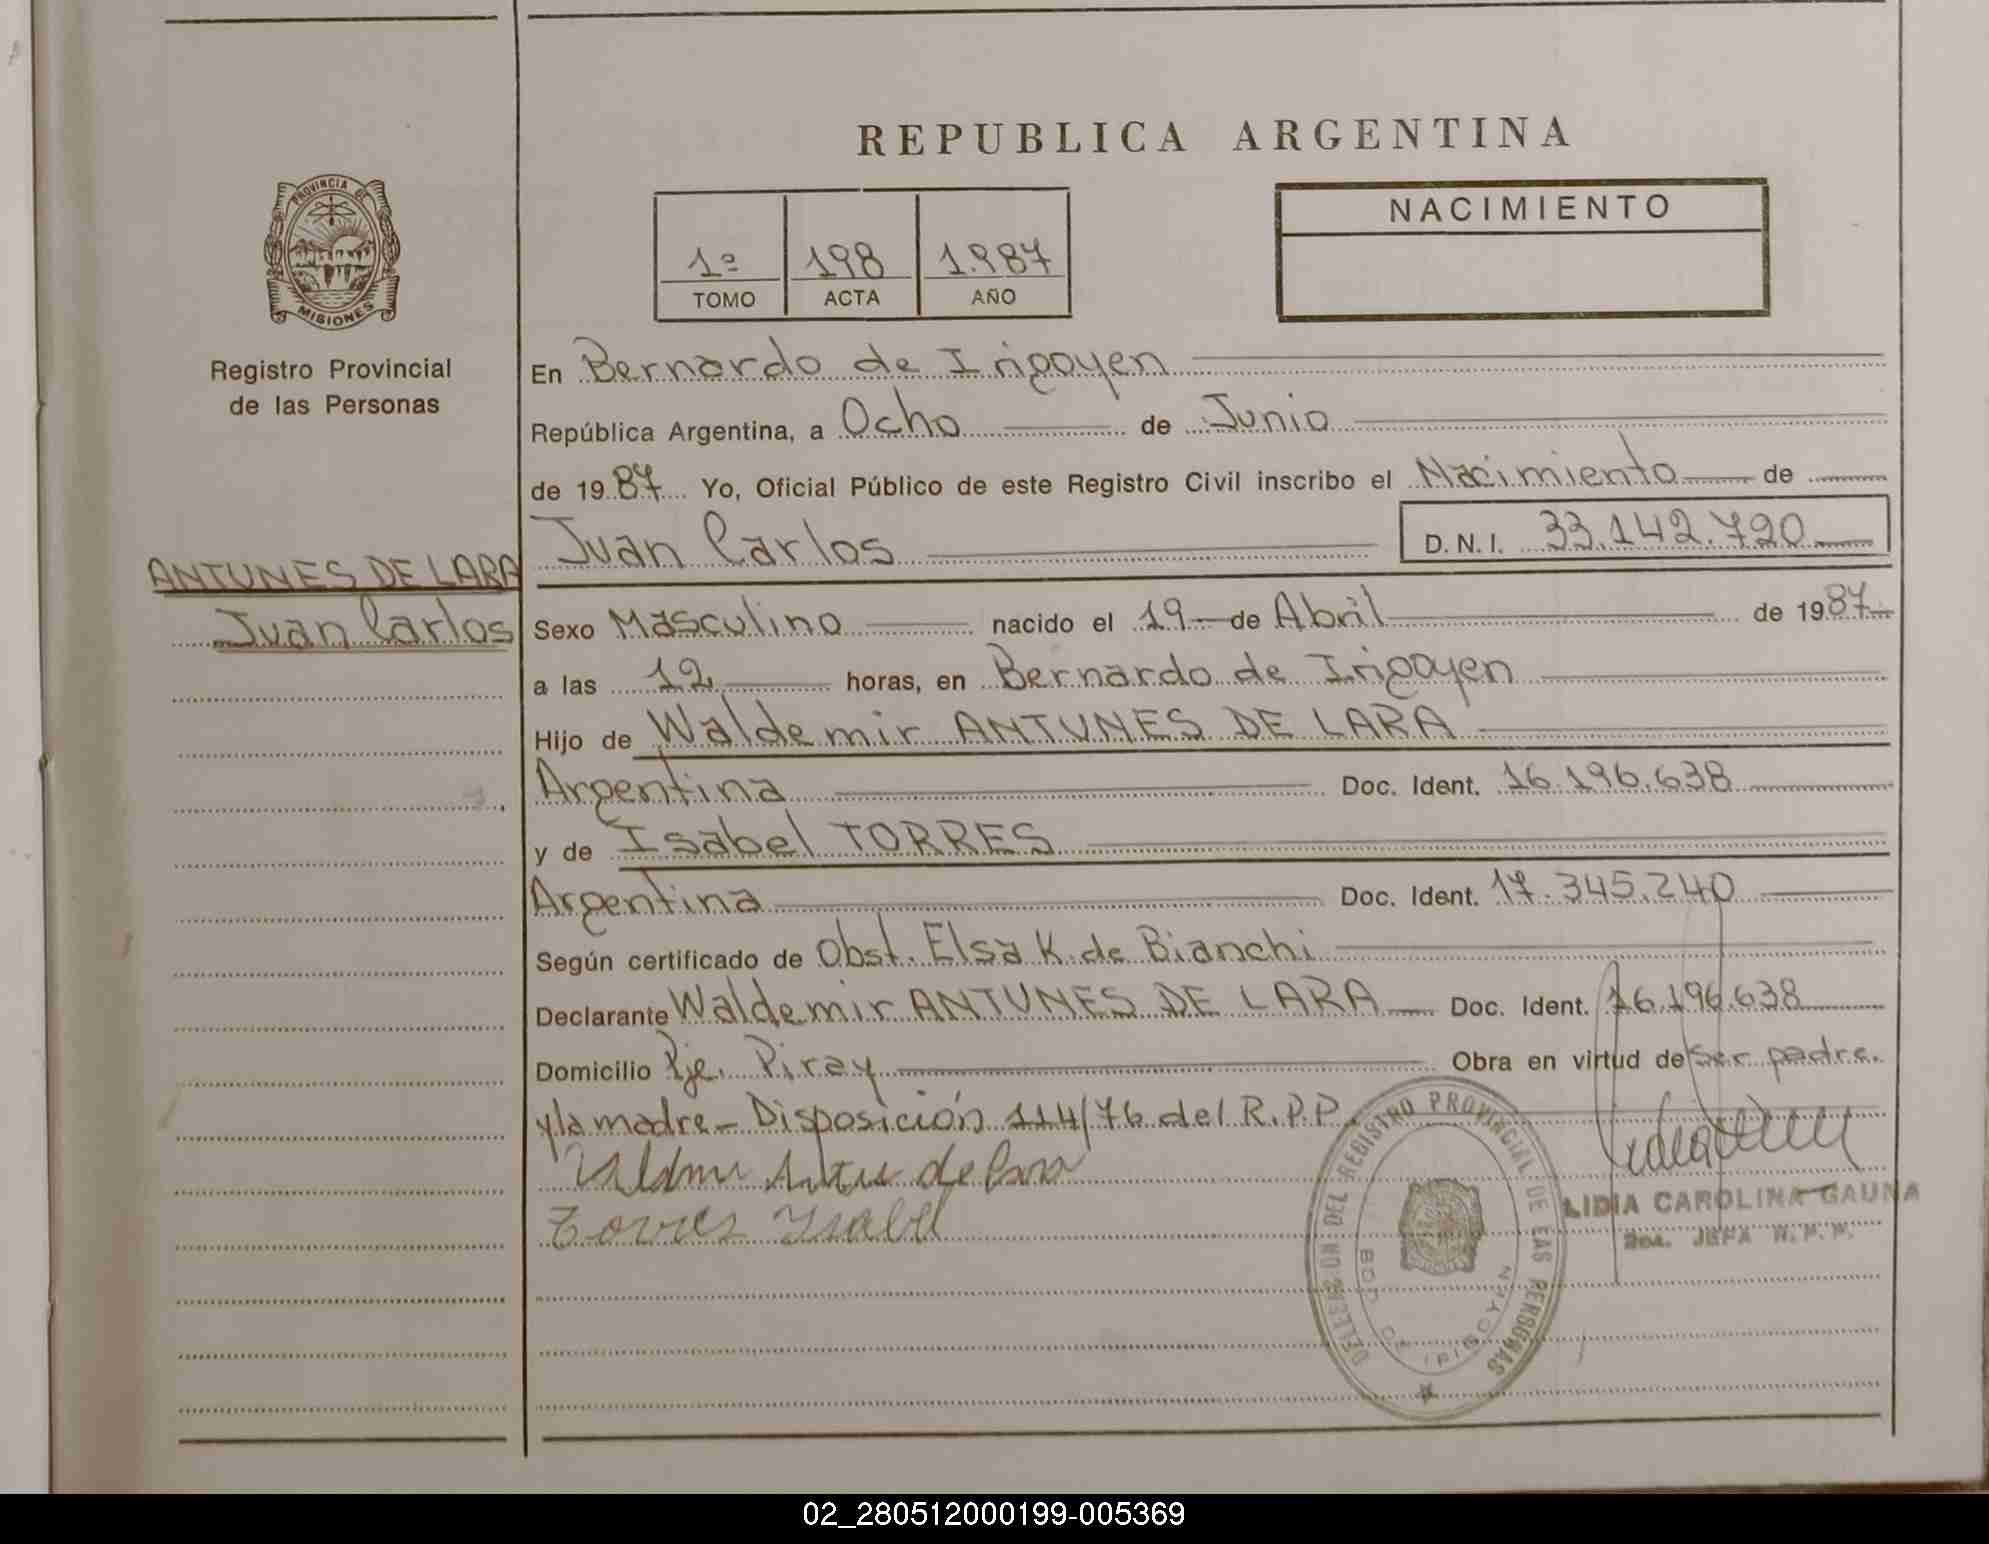 REPUBLICA ARGENTINA
PROVINCIA DE
MISIONES
Registro Provincial
de las Personas
1º 198 1.987
TOMO ACTA AÑO
NACIMIENTO
En Bernardo de Irigoyen
República Argentina, a Ocho de Junio
de 1987 Yo, Oficial Público de este Registro Civil inscribo el Nacimiento de
Juan Carlos D.N.I. 33.142.720
ANTUNES DE LARA
Juan Carlos
Sexo Masculino nacido el 19 de Abril de 1987
a las 12 horas, en Bernardo de Irigoyen
Hijo de Waldemir ANTUNES DE LARA
Argentina Doc. Ident. 16.196.638
y de Isabel TORRES
Argentina Doc. Ident. 17.345.240
Según certificado de Obst. Elsa K. de Bianchi
Declarante Waldemir ANTUNES DE LARA Doc. Ident. 16.196.638
Domicilio Pje. Piray Obra en virtud de ser padre.
y la madre - Disposición 114/76 del R.P.P.
de Lara
Torres Ysabel
DELEGACION DEL REGISTRO PROVINCIAL DE LAS PERSONAS
BDO DE IRIGOYEN
LIDIA CAROLINA GAUNA
JEFA R.P.P.
02_280512000199-005369